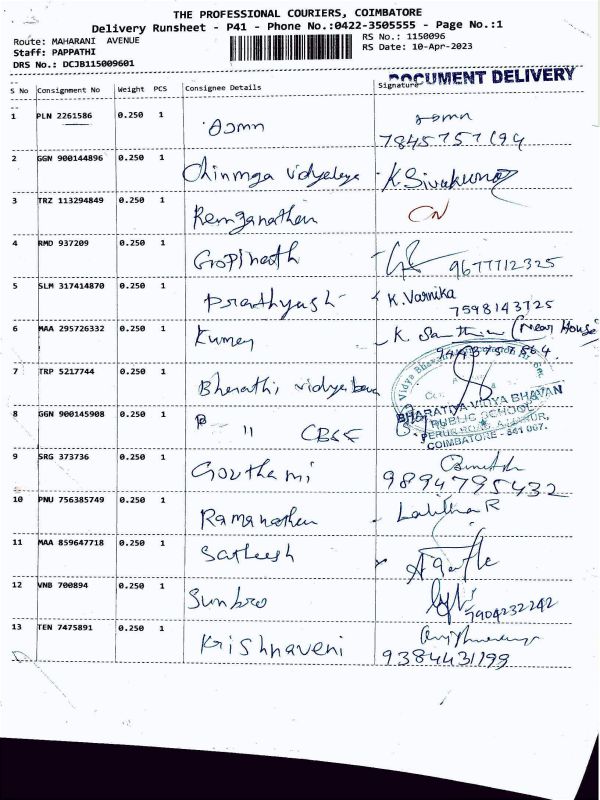 THE PROFESSIONAL COURIERS, COIMBATORE
Delivery Runsheet - P41 - Phone No.:0422-3505555 - Page No.:1
Route: MAHARANI AVENUE RS No.: 1150096
Staff: PAPPATHI RS Date: 10-Apr-2023
DRS No.: DCJB115009601
DOCUMENT DELIVERY
S No Consignment No Weight PCS Consignee Details Signature
1 PLN 2261586 0.250 1
7845757194
2 GGN 900144896 0.250 1 Chinmya Vidyalaya K. Sivakumar
3 TRZ 113294849 0.250 1 Ramganathan CN
4 RMD 937209 0.250 1 Gopinath 9677712325
5 SLM 317414870 0.250 1 Prathyash K. Varnika
7598143725
6 MAA 295726332 0.250 1 Kumar K. (Near House)
7 TRP 5217744 0.250 1 Bharathi vidya
BHARATIYA VIDYA BHAVAN
PUBLIC SCHOOL
COIMBATORE - 641 007.
8 GGN 900145908 0.250 1 " CBSE
9 SRG 373736 0.250 1 Gouthami
9894795432
10 PNU 756385749 0.250 1 Ramanathan Lalitha R
11 MAA 859647718 0.250 1 Satheesh
12 VNB 700894 0.250 1 Sunbro 7904232242
13 TEN 7475891 0.250 1 Krishnaveni
9384431199